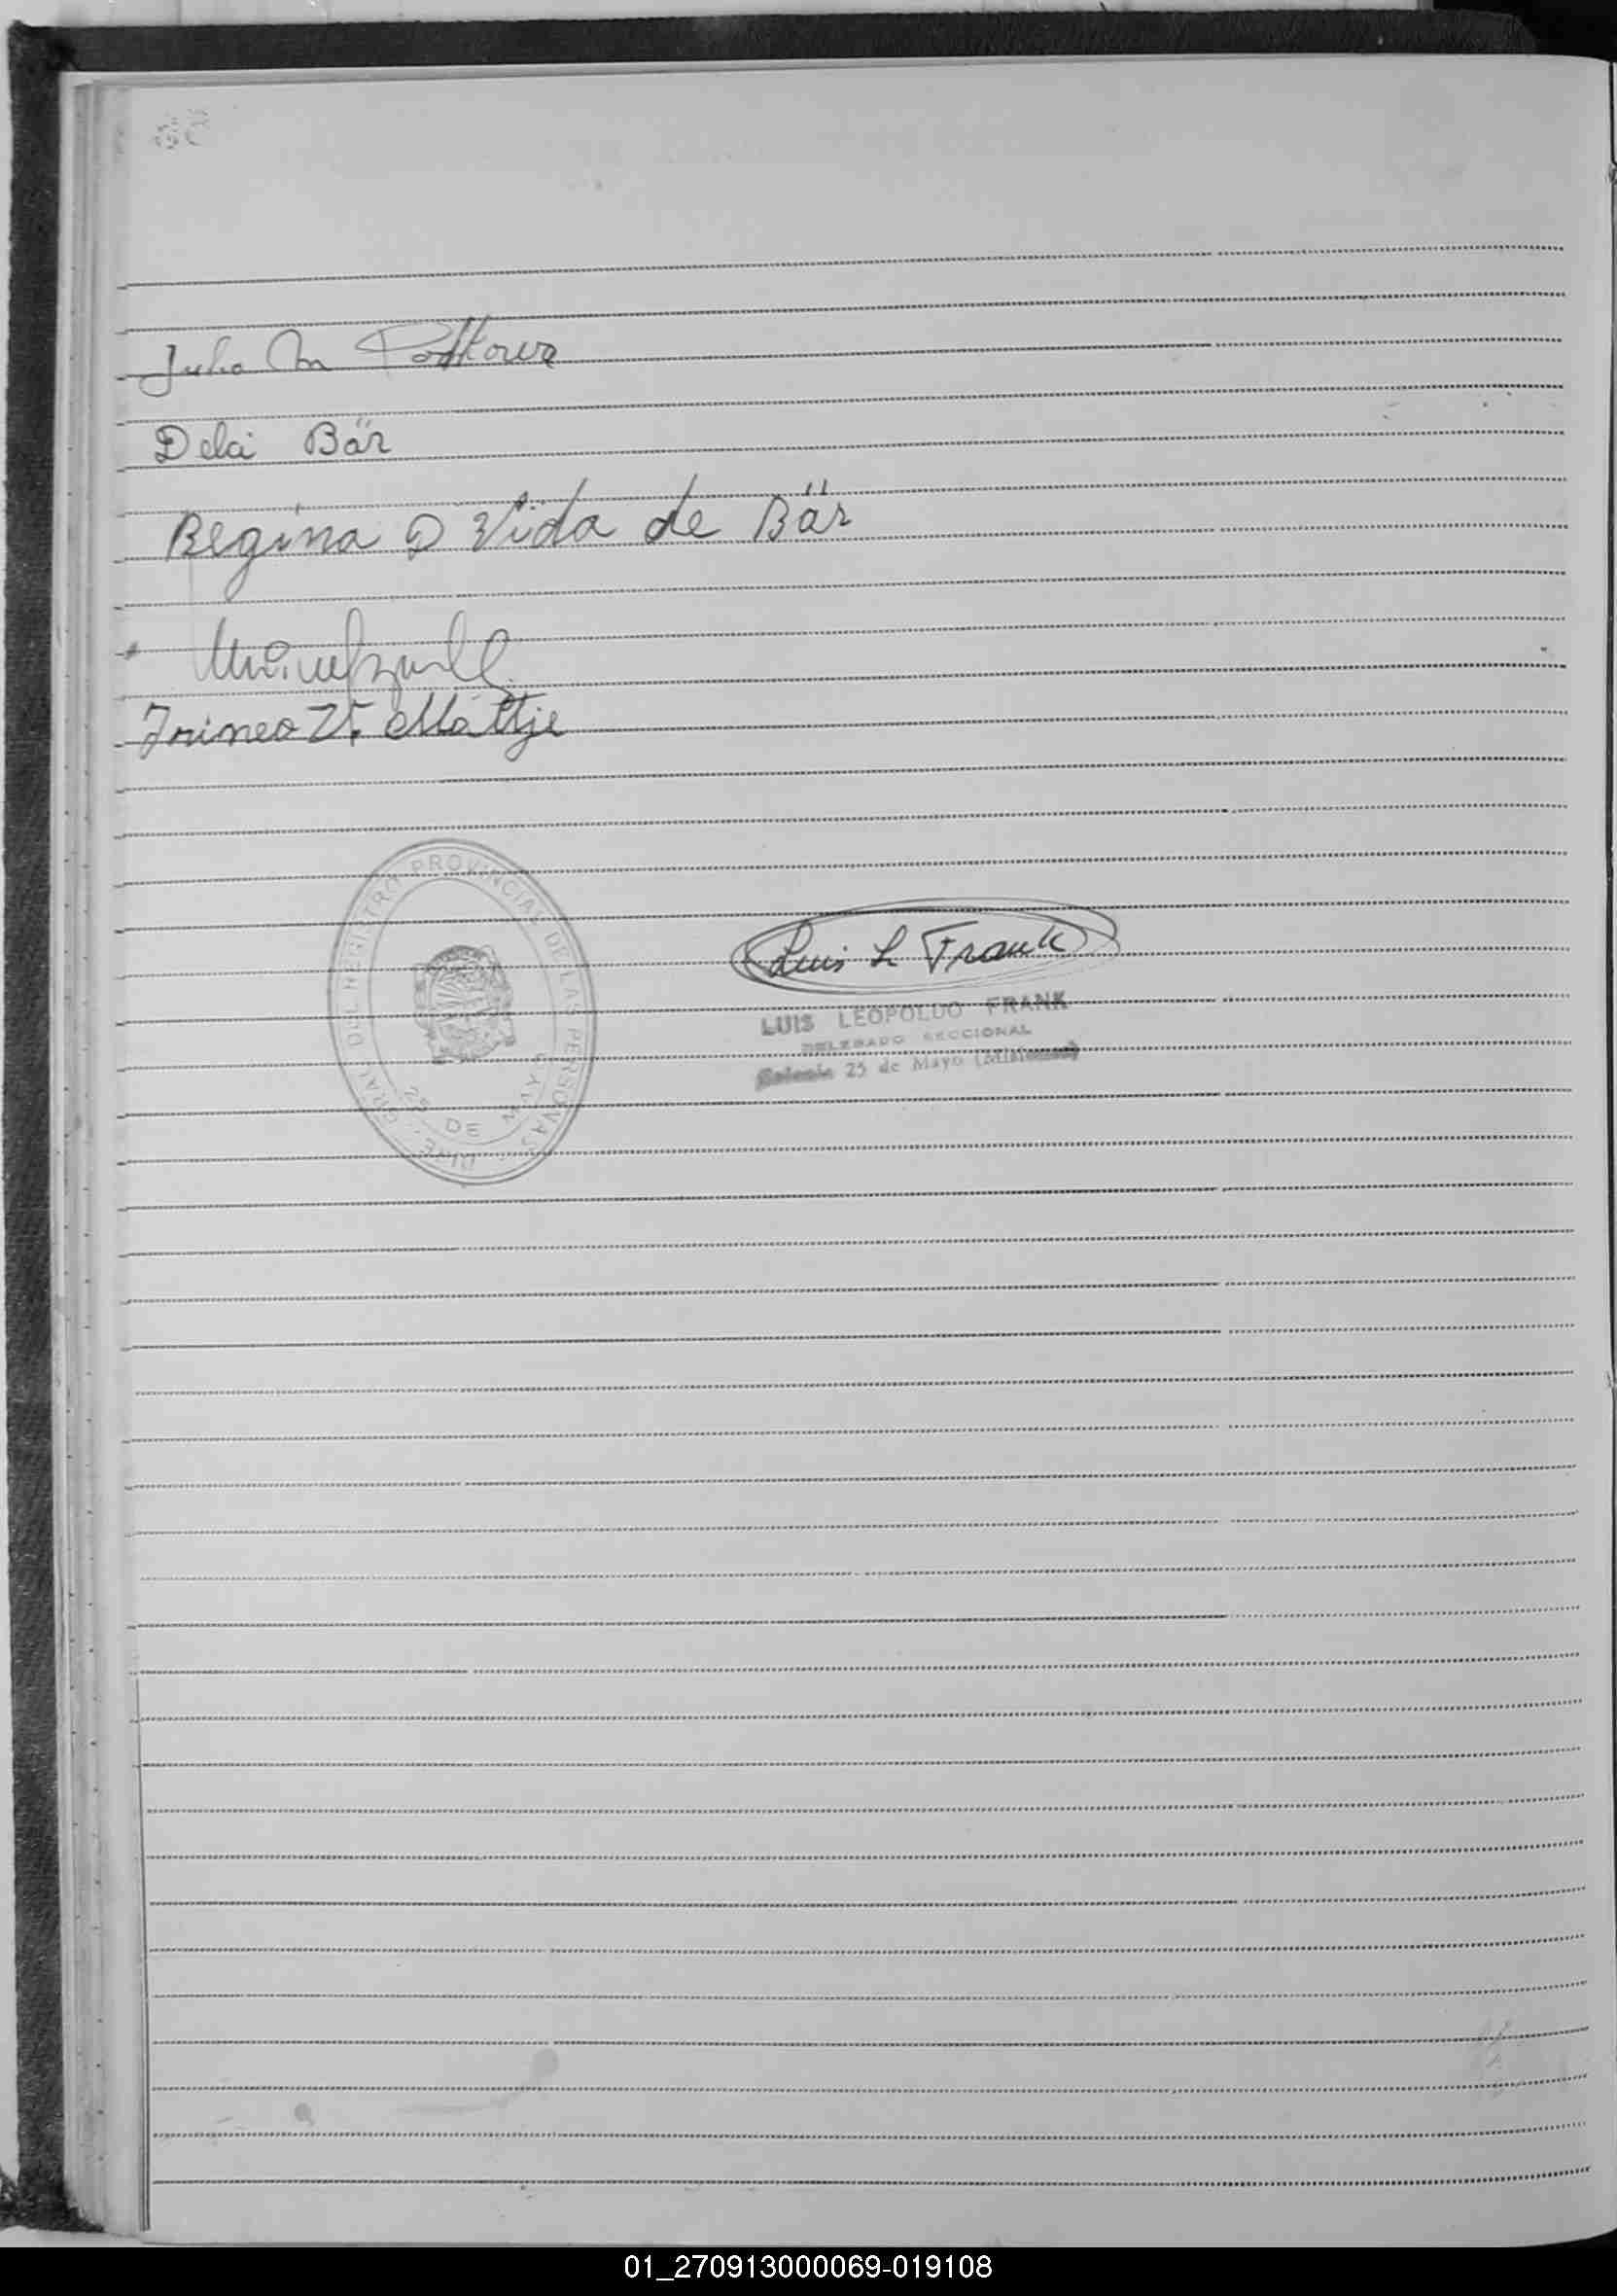 Julio M
Delci Bär
Regina D Vida de Bär
Irineo V. Mattje
DIRE. GRAL DEL REGISTRO PROVINCIAL DE LAS PERSONAS
25 DE MAYO
Luis L Frank
LUIS LEOPOLDO FRANK
DELEGADO SECCIONAL
Colonia 25 de Mayo (Misiones)
01_270913000069-019108